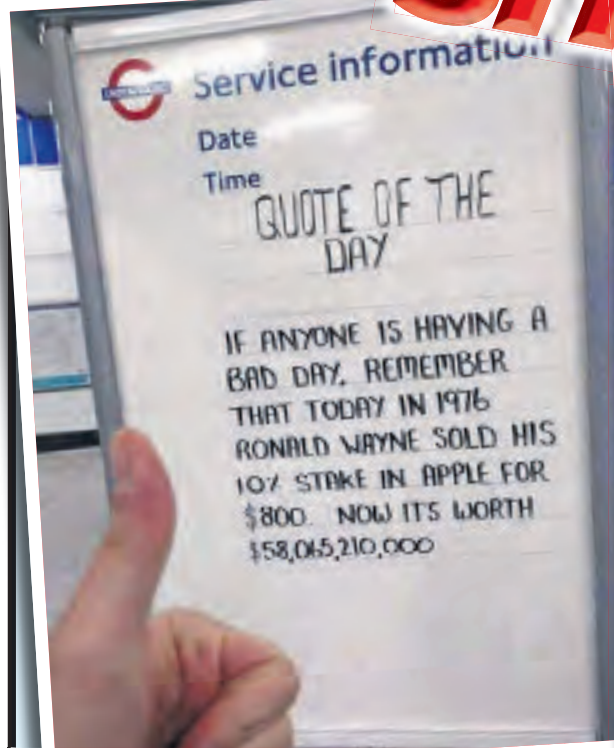 UNDERGROUND
Service information
Date
Time
QUOTE OF THE
DAY
IF ANYONE IS HAVING A
BAD DAY, REMEMBER
THAT TODAY IN 1976
RONALD WAYNE SOLD HIS
10% STAKE IN APPLE FOR
$800. NOW ITS WORTH
$58,065,210,000